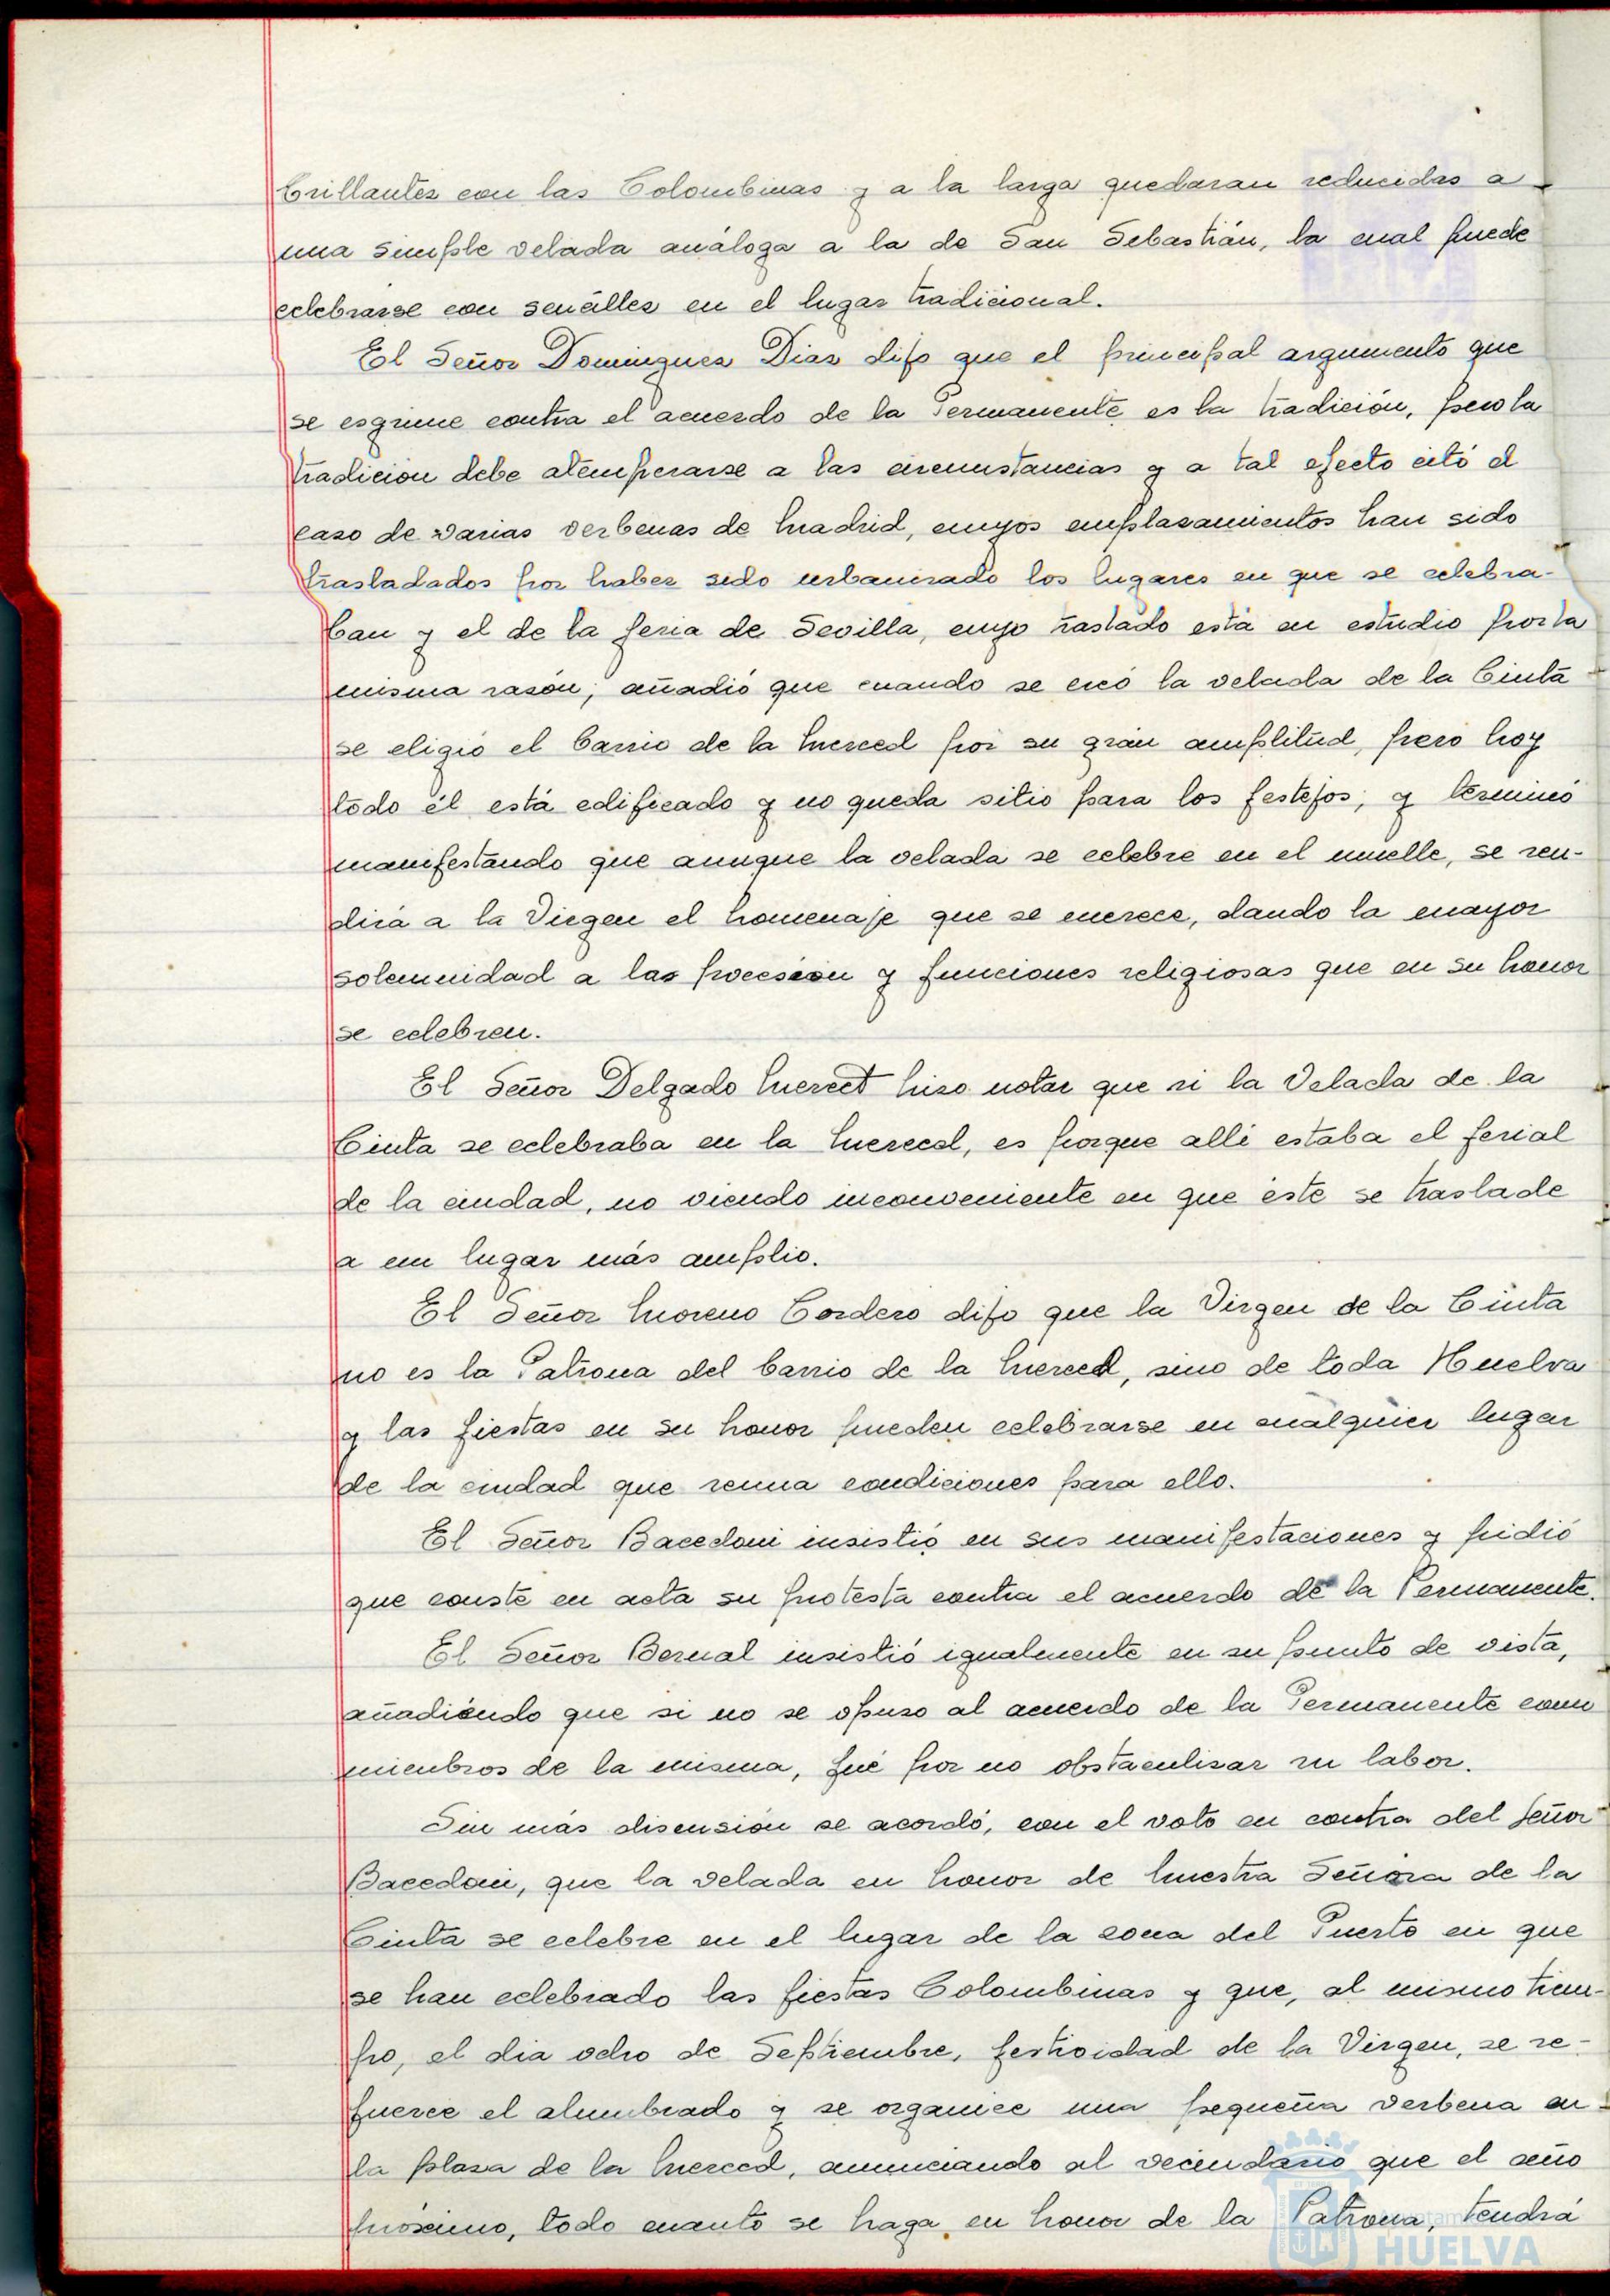 brillantes con las Colombinas y a la larga quedaran reducidas a
una simple velada análoga a la de San Sebastián, la cual puede
celebrarse con sencillez en el lugar tradicional.
El Señor Dominguez Diaz dijo que el principal argumento que
se esgrime contra el acuerdo de la Permanente es la tradición, pero la
tradición debe atemperarse a las circunstancias y a tal efecto citó el
caso de varias verbenas de Madrid, cuyos emplazamientos han sido
trasladados por haber sido urbanizado los lugares en que se celebra-
ban y el de la feria de Sevilla, cuyo traslado está en estudio por la
misma razón; añadió que cuando se creó la velada de la Cinta
se eligió el barrio de la Merced por su gran amplitud, pero hoy
todo él está edificado y no queda sitio para los festejos; y terminó
manifestando que aunque la velada se celebre en el muelle, se ren-
dirá a la Virgen el homenaje que se merece, dando la mayor
solemnidad a las procesión y funciones religiosas que en su honor
se celebren.
El Señor Delgado Merect hizo notar que si la Velada de la
Cinta se celebraba en la Merced, es porque allí estaba el ferial
de la ciudad, no viendo inconveniente en que éste se traslade
a un lugar más amplio.
El Señor Moreno Cordero dijo que la Virgen de la Cinta
no es la Patrona del barrio de la Merced, sino de toda Huelva
y las fiestas en su honor pueden celebrarse en cualquier lugar
de la ciudad que reuna condiciones para ello.
El Señor Bacedoni insistió en sus manifestaciones y pidió
que conste en acta su protesta contra el acuerdo de la Permanente.
El Señor Bernal insistió igualmente en su punto de vista,
añadiendo que si no se opuso al acuerdo de la Permanente como
miembros de la misma, fué por no obstaculizar su labor.
Sin más discusión se acordó, con el voto en contra del Señor
Bacedoni, que la velada en honor de Nuestra Señora de la
Cinta se celebre en el lugar de la zona del Puerto en que
se han celebrado las fiestas Colombinas y que, al mismo tiem-
po, el dia ocho de Septiembre, festividad de la Virgen, se re-
fuerce el alumbrado y se organice una pequeña verbena en
la plaza de la Merced, anunciando al vecindario que el año
próximo, todo cuanto se haga en honor de la Patrona, tendrá
HUELVA